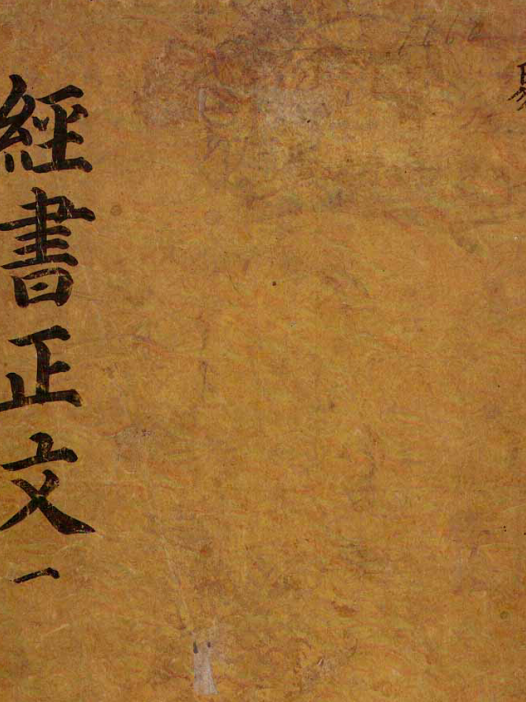 經書正文一